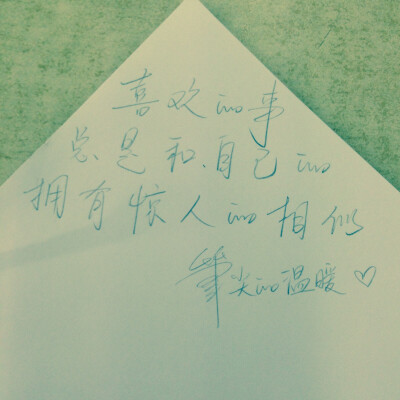 喜欢的事
总是和自己的
拥有惊人的相似
筆尖的温暖♡